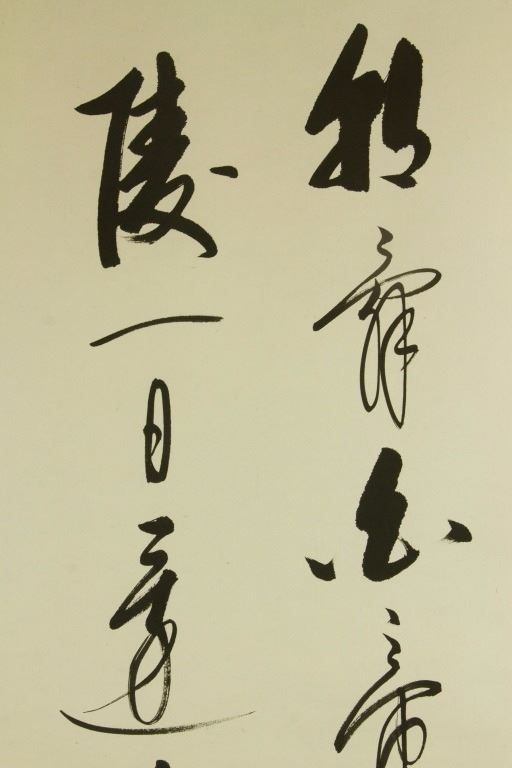 朝辞白帝
陵一日還